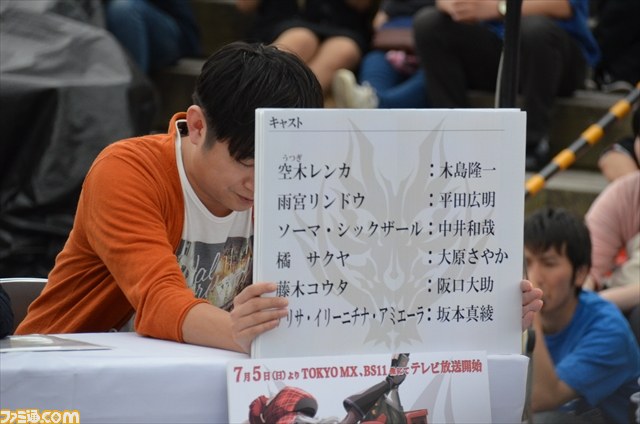 キャスト
うつぎ
空木レンカ：木島隆一
雨宮リンドウ：平田広明
ソーマ・シックザール：中井和哉
橘 サクヤ：大原さやか
藤木コウタ：阪口大助
リサ・イリーニチナ・アミエーラ：坂本真綾
7月5日(日)より TOKYO MX、BS11 ほかにてテレビ放送開始
ファミ通.com